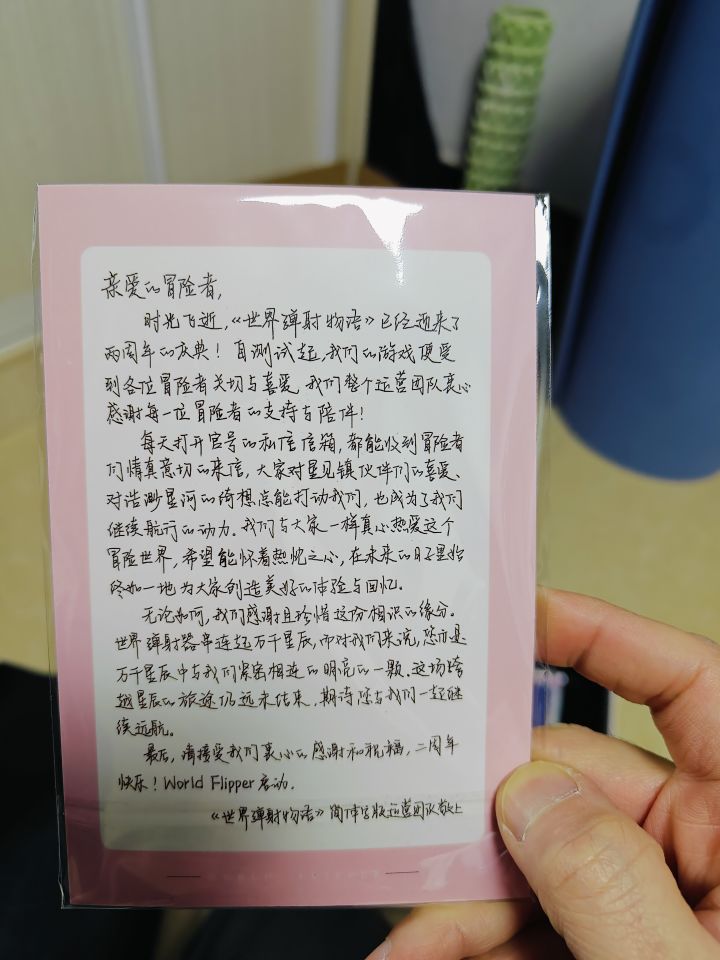 亲爱的冒险者,
时光飞逝,《世界弹射物语》已经迎来了
两周年的庆典!自测试起,我们的游戏便受
到各位冒险者关切与喜爱,我们整个运营团队衷心
感谢每一位冒险者的支持与陪伴!
每天打开官号的私信信箱,都能收到冒险者
们情真意切的来信,大家对星见镇伙伴们的喜爱、
对浩渺星河的绮想总能打动我们,也成为了我们
继续航行的动力。我们与大家一样真心热爱这个
冒险世界,希望能怀着热忱之心,在未来的日子里始
终如一地为大家创造美好的体验与回忆。
无论如何,我们感谢且珍惜这份相识的缘分。
世界弹射器串连起万千星辰,而对我们来说,您亦是
万千星辰中与我们紧密相连的明亮的一颗。这场跨
越星辰的旅途仍远未结束,期待您与我们一起继
续远航。
最后,请接受我们衷心的感谢和祝福,二周年
快乐!World Flipper启动.
《世界弹射物语》简体字版运营团队敬上